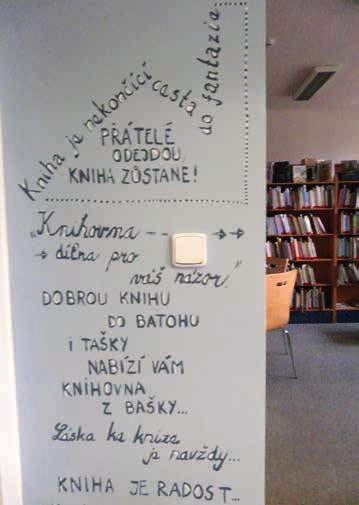 Kniha je nekončící cesta do fantazie
PŘÁTELÉ
ODEJDOU,
KNIHA ZŮSTANE!
„Knihovna -- →→
→ dílna pro
váš názor."
DOBROU KNIHU
DO BATOHU
i TAŠKY
NABÍZÍ VÁM
KNIHOVNA
Z BAŠKY...
Láska ke knize
je navždy...
KNIHA JE RADOST...